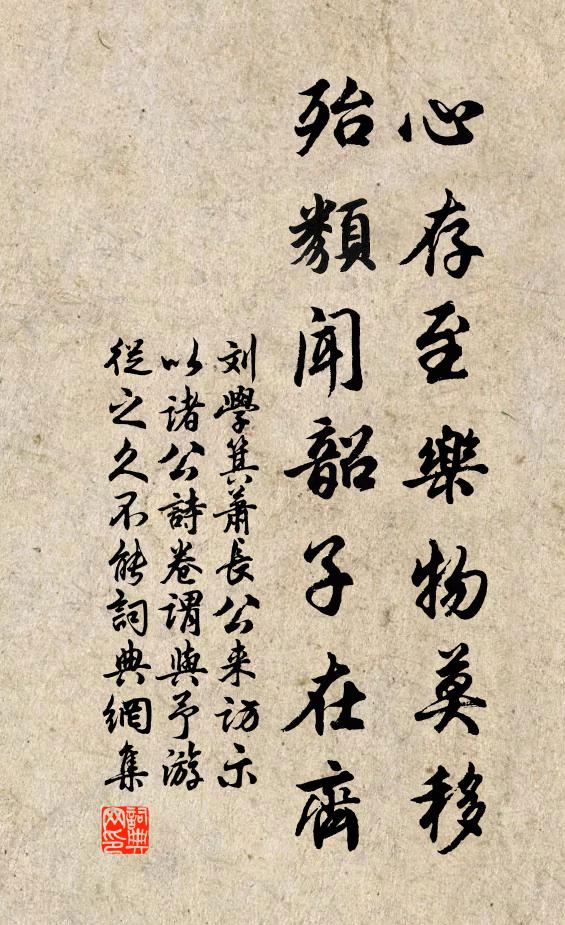 心存至樂物莫移
殆類聞韶子在齊
刘學箕蕭長公来访示
以诸公詩卷謂與予游
從之久不能詞典網集
詞典网印